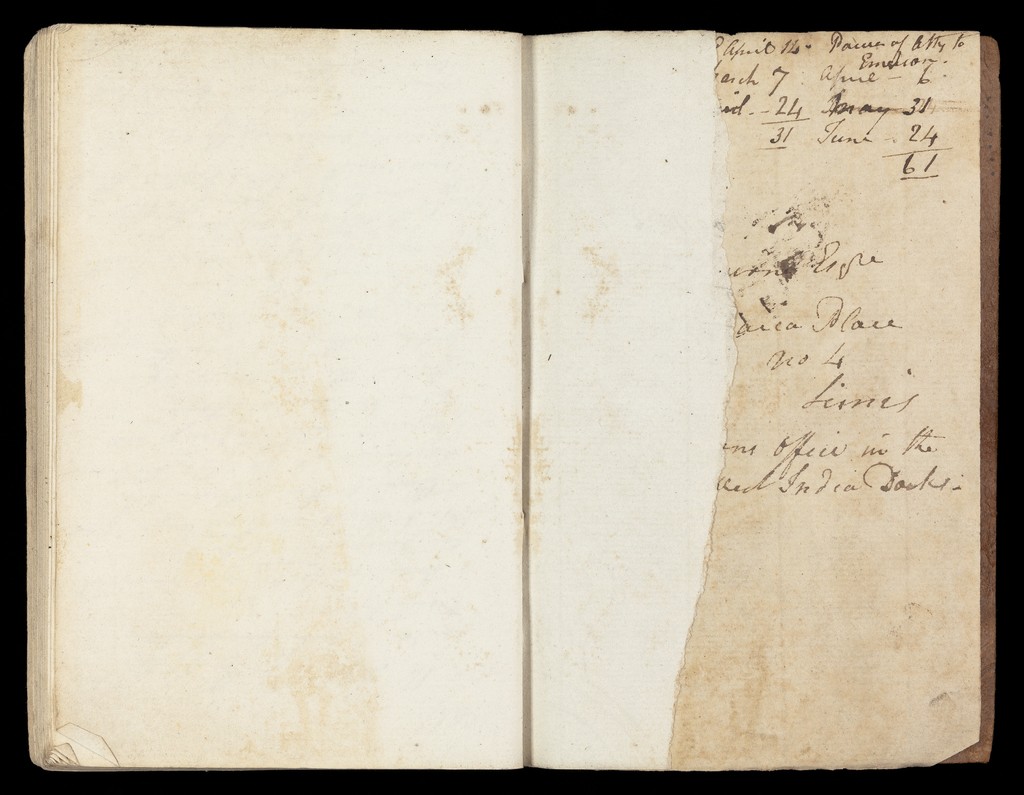 April 14 - Power of Atty to
Emerson.
arch 7 April - 6
- 24 May 31
31 June - 24
61
Esqre
aica Place
no 4
Office in the
India Docks -